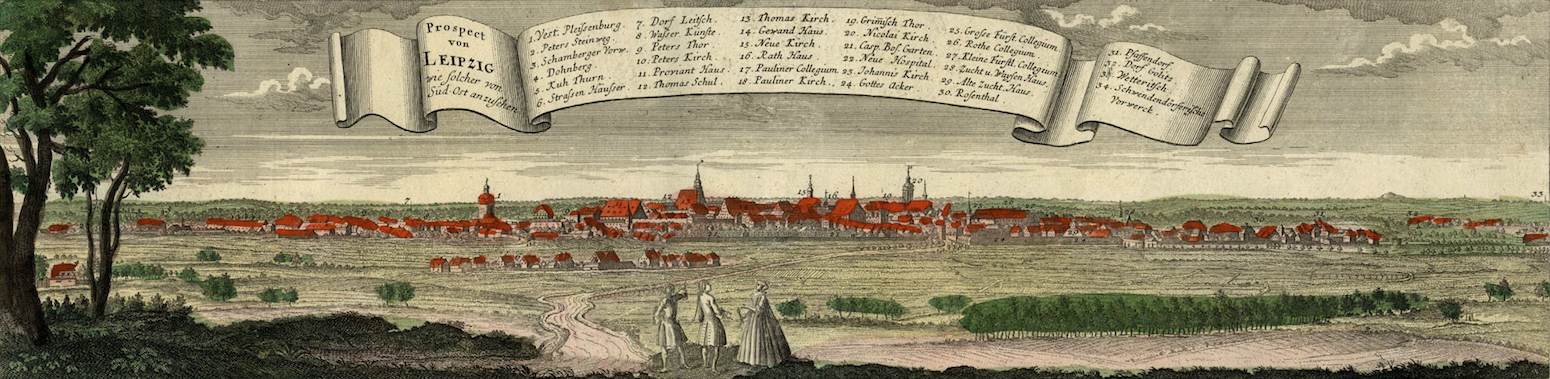 Prospect
von
LEIPZIG
wie solcher von
Süd-Ort anzusehen
1. Vest. Pleissenburg.
2. Peters Steinweg.
3. Schamberger Vorw.
4. Dohnberg.
5. Kuh Thurn.
6. Strassen Häusser.
7. Dorf Leitsch.
8. Wasser Künste.
9. Peters Thor.
10. Peters Kirch.
11. Proviant Haus.
12. Thomas Schul.
13. Thomas Kirch.
14. Gewand Haus.
15. Neue Kirch.
16. Rath Haus
17. Pauliner Collegium.
18. Pauliner Kirch.
19. Grimisch Thor.
20. Nicolai Kirch.
21. Casp. Bos. Garten.
22. Neue Hospital.
23. Johannis Kirch.
24. Gottes Acker.
25. Grosse Fürst. Collegium.
26. Rothe Collegium.
27. Kleine Fürstl. Collegium.
28. Zucht u. Waysen Haus.
29. Alte Zucht. Haus.
30. Rosenthal.
31. Pfaffendorf.
32. Dorf Gohlis
33. Wetteritsch.
34. Schwendendörferische
Vorwerck.
7
1
12
15
16
19
20
33.